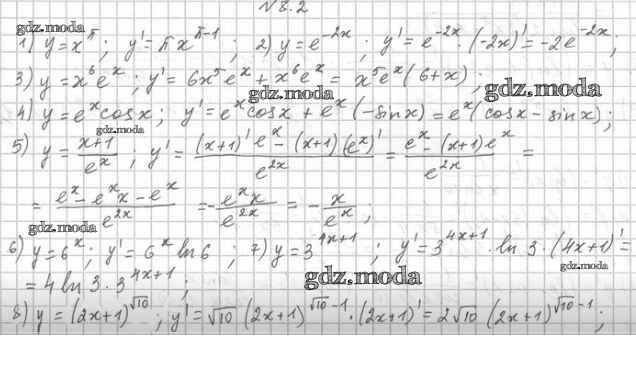 №8.2
gdz.moda
1) y = x^π; y' = πx^(π-1); 2) y = e^(-2x); y' = e^(-2x) · (-2x)' = -2e^(-2x);
3) y = x⁶eˣ; y' = 6x⁵eˣ + x⁶eˣ = x⁵eˣ(6+x);
gdz.moda
gdz.moda
4) y = eˣcosx; y' = eˣcosx + eˣ(-sinx) = eˣ(cosx - sinx);
gdz.moda
5) y = (x+1)/eˣ, y' = ((x+1)'eˣ - (x+1)(eˣ)')/e^(2x) = (eˣ - (x+1)eˣ)/e^(2x) =
= (eˣ - eˣx - eˣ)/e^(2x) = -eˣx/e^(2x) = -x/eˣ;
gdz.moda
6) y = 6ˣ; y' = 6ˣ ln6; 7) y = 3^(4x+1); y' = 3^(4x+1) · ln3 · (4x+1)' =
gdz.moda
gdz.moda
= 4 ln3 · 3^(4x+1);
8) y = (2x+1)^√10; y' = √10 (2x+1)^(√10-1) · (2x+1)' = 2√10 (2x+1)^(√10-1);